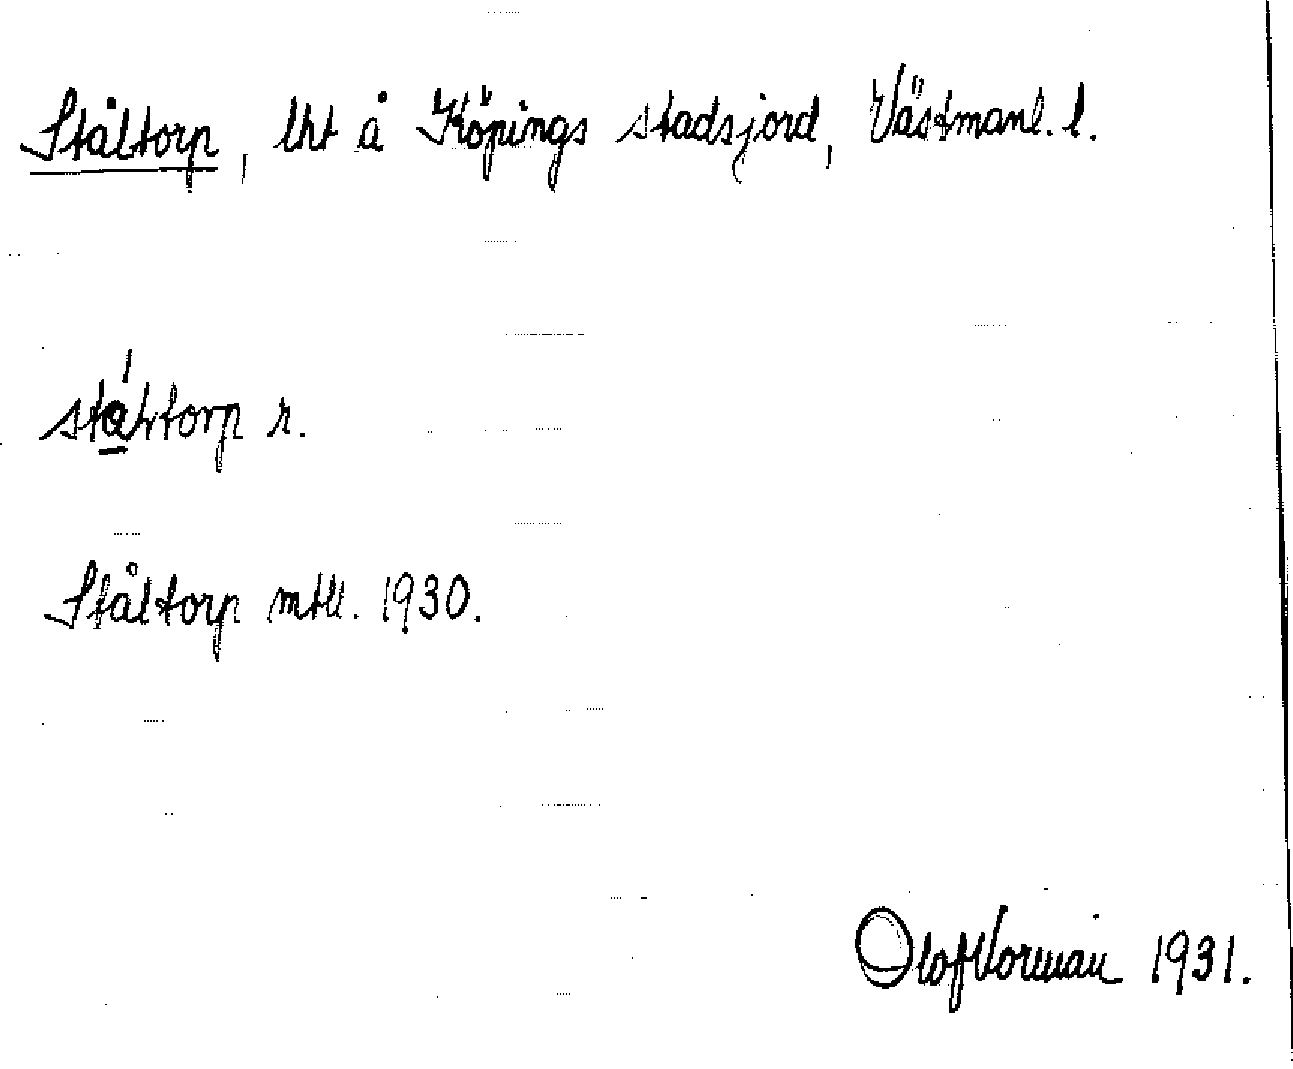 Ståltorp, lht å Köpings stadsjord, Västmanl. l.
Ståltorp mtll. 1930.
Olof 1931.